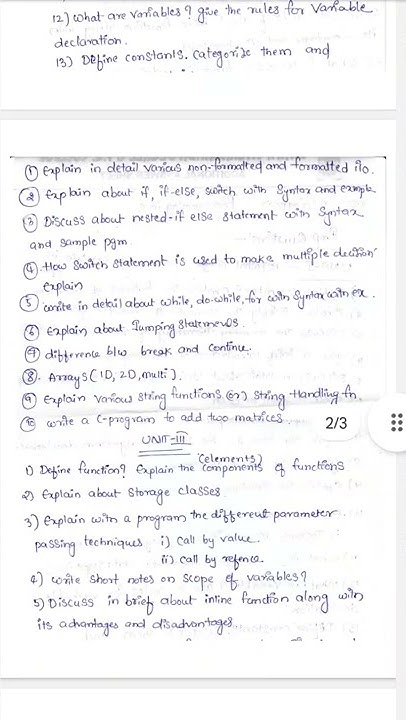 12) What are variables? give the rules for Variable
declaration.
13) Define constants. Categorize them and
① Explain in detail various non-formatted and formatted i/o.
② Explain about if, if-else, switch with Syntax and example
③ Discuss about nested-if else statement with Syntax
and sample pgm.
④ How Switch statement is used to make multiple decision
explain
⑤ write in detail about while, do-while, for with Syntax with ex.
⑥ Explain about Jumping Statements.
⑦ difference b/w break and continue.
⑧. Arrays (1D, 2D, multi).
⑨ Explain Various String functions (or) String Handling fn.
⑩ write a C-program to add two matrices.
2/3
UNIT-III
(elements)
1) Define function? Explain the components of functions
2) Explain about Storage classes.
3) Explain with a program the different parameter
passing techniques i) Call by value.
ii) Call by refence.
4) write short notes on scope of variables?
5) Discuss in brief about inline function along with
its advantages and disadvantages.